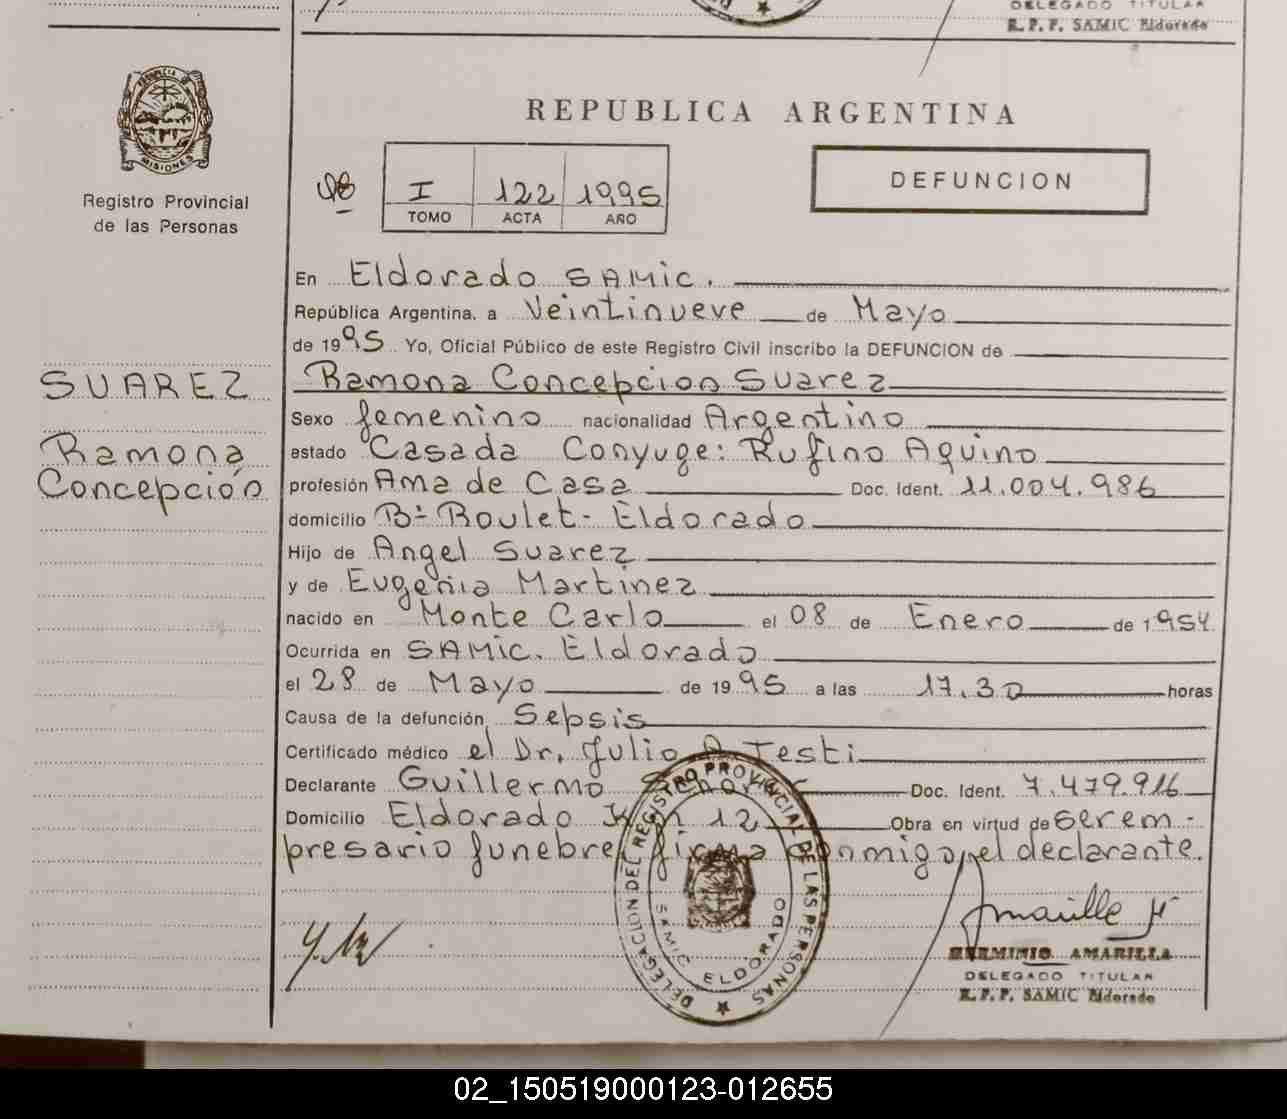 DELEGADO TITULAR
R.P.P. SAMIC Eldorado
PROVINCIA DE
MISIONES
Registro Provincial
de las Personas
REPUBLICA ARGENTINA
I 122 1995
TOMO ACTA AÑO
DEFUNCION
En Eldorado SAMIC.
República Argentina. a Veintinueve de Mayo
de 1995 Yo, Oficial Público de este Registro Civil inscribo la DEFUNCION de
SUAREZ
Ramona
Concepción
Ramona Concepcion Suarez
Sexo femenino nacionalidad Argentino
estado Casada Conyuge: Rufino Aquino
profesión Ama de Casa Doc. Ident. 11.004.986
domicilio Bº Roulet - Eldorado
Hijo de Angel Suarez
y de Eugenia Martinez
nacido en Monte Carlo el 08 de Enero de 1954
Ocurrida en SAMIC. Eldorado
el 28 de Mayo de 1995 a las 17.30 horas
Causa de la defunción Sepsis
Certificado médico el Dr. Julio A Testi
Declarante Guillermo Doc. Ident. 7.479.916
Domicilio Eldorado Km 12 Obra en virtud de ser em-
presario funebre firma conmigo, el declarante.
DELEGACION DEL REGISTRO PROVINCIAL DE LAS PERSONAS
SAMIC ELDORADO
Amarilla H
HERMINIO AMARILLA
DELEGADO TITULAR
R.P.P. SAMIC Eldorado
02_150519000123-012655